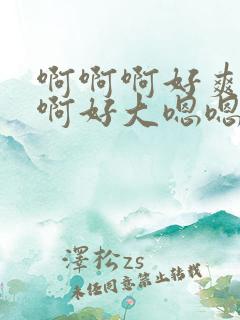 啊啊啊好爽
啊好大嗯嗯
澤松zs
未经同意禁止转载